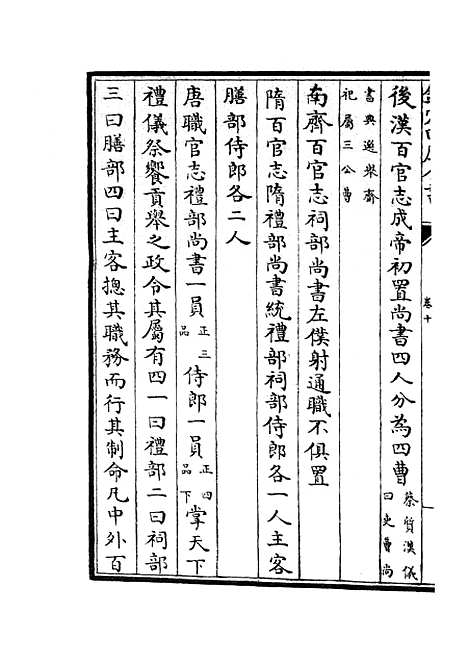 卷十
後漢百官志成帝初置尚書四人分為四曹蔡質漢儀曰史曹尚
書典選舉齋祀屬三公曹
南齊百官志祠部尚書左僕射通職不俱置
隋百官志隋禮部尚書統禮部祠部侍郎各一人主客
膳部侍郎各二人
唐職官志禮部尚書一員正三品侍郎一員正四品下掌天下
禮儀祭饗貢舉之政令其屬有四一曰禮部二曰祠部
三曰膳部四曰主客揔其職務而行其制命凡中外百